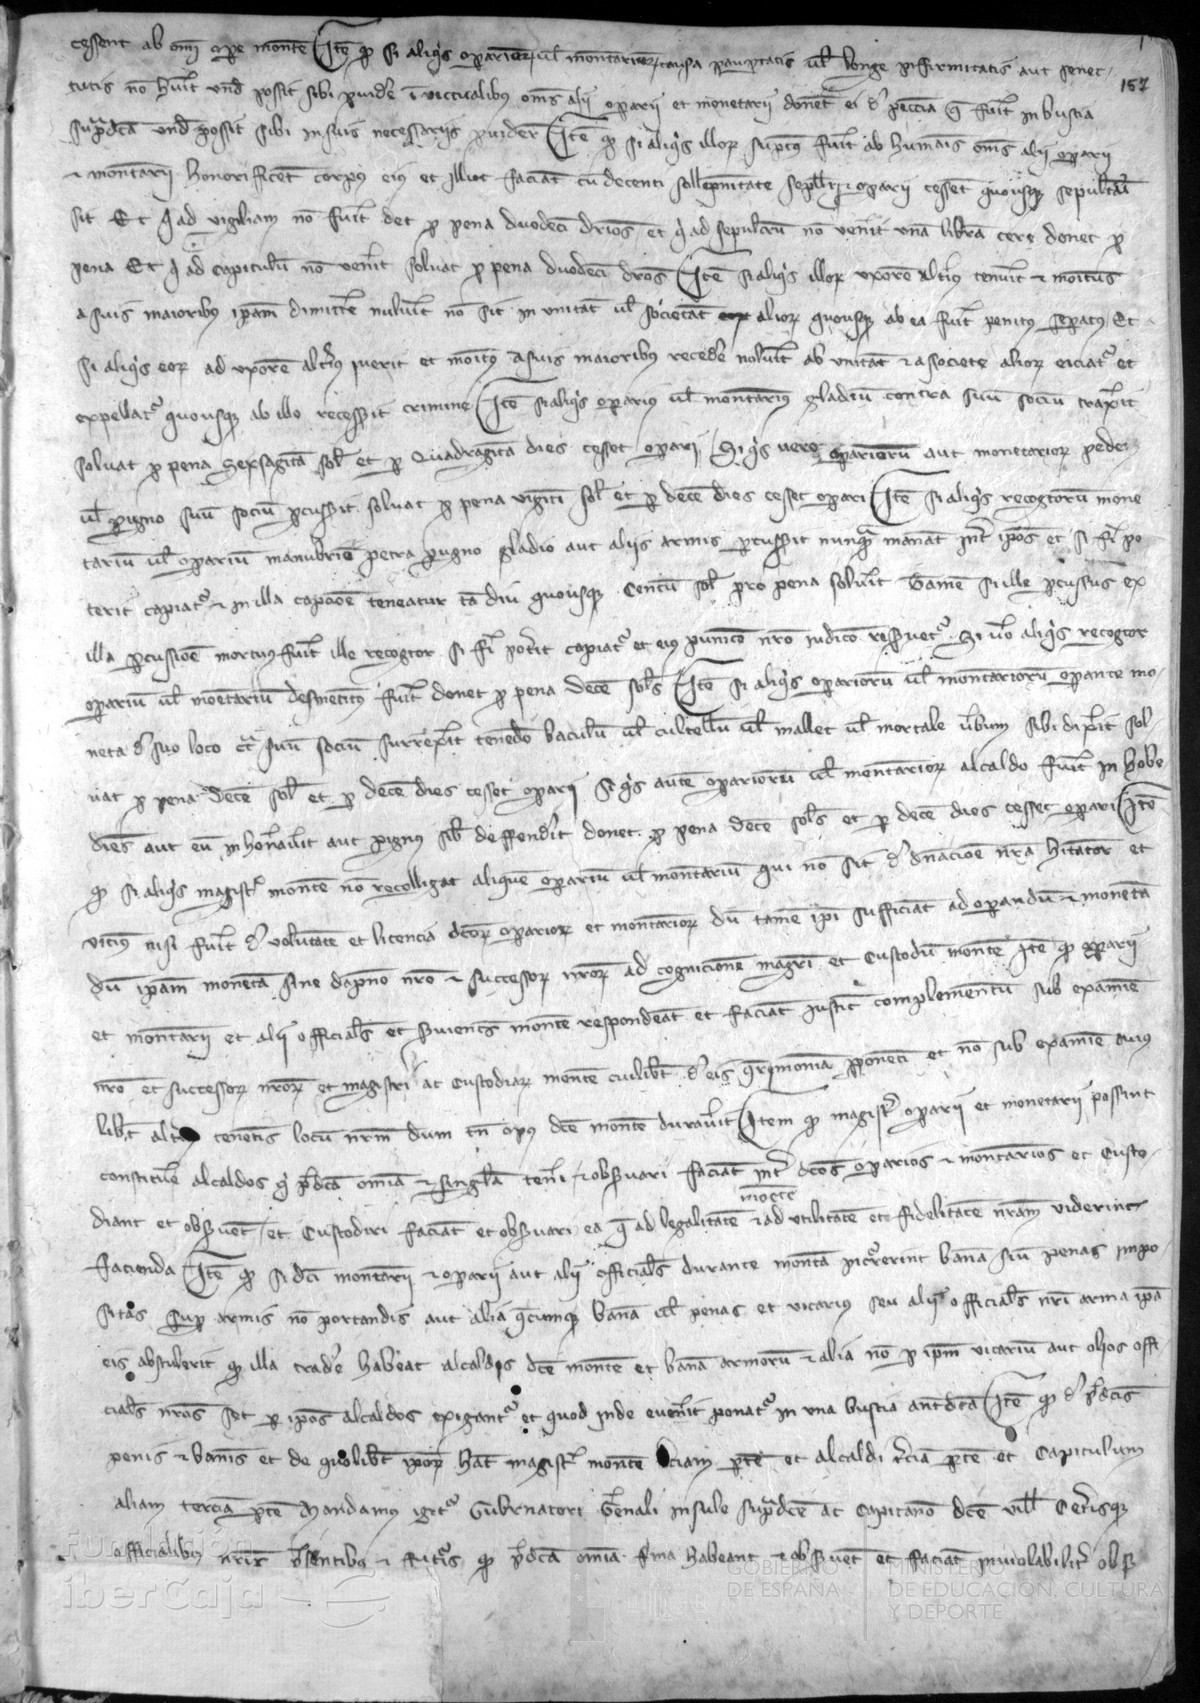 157
cessent ab om̄i ope monete Itē qd si aliqs operarior vel monetarior causa paupertatis vel longe infirmitatis aut senec-
tutis nō huit und possit sibi puidere ī victualibus oms alii operarii et monetarii donēt ei de peccia q fuit in bustia
supradcā und possit sibi in suis necessariis puidere Itē qd si aliqs illor suptus fuit ab humanis oms alii operarii
et monetarii honorificēt corpus eius et illut faciāt cū decenti sollepnitate sepelliri et operarii cessēt quousq sepultus
sit Et q ad vigiliam nō fuit det p pena duodeci dnos et q ad sepulcrū nō venit unā librā cere donet p
pena Et q ad capitulū nō venit solvat p pena duodeci dnos Itē si aliqs illor uxorē altius tenuit et monitus
a suis maioribus ipam dimitte noluit nō sit in unitat vel societat alior quousq ab ea fuit penitus sepatus Et
si aliqs eor ad uxorē altius iverit et monitus a suis maioribus recede noluit ab unitat et a societe alior eiciatr et
expellatr quousq ab illo recessit crimine Itē si aliqs operarius vel monetarius gladiū contra suū sociū traxit
solvat p pena sexsagita sol et p quadraginta dies cesset operari Si qs vero operariorū aut monetarior pede
vel pugno suū sociū pcussit solvat p pena viginti sol et p decē dies cesset operari Itē si aliqs recogtorū mone
tariū vel operariū manubrio petra pugno gladio aut aliis armis pcussit nunq maneat int ipos et si fi po
terit capiatr et in illa capcioē teneatur tā diu quousq centū sol pro pena solvit Tamē si ille pcussus ex
illa pcussioē mortuus fuit ille recogtor si fi potit capiatr et eius punicō nro iudicio reservetr Si vo aliqs recogtor
operariū vel monetariū desmentitus fuit donet p pena decē sols Itē si aliqs operariorū vel monetariorū operante mo-
neta de suo loco ct suū sociū surrexit tenendo baculū vel cultellū vel mallet vel mortale vbum sibi dixit sol-
vat p pena decē sol et p decē dies cesset operari Si qs autē operariorū vel monetarior alcaldo fuit inhobe
diēs aut eū inhonavit aut pignus sibi deffendit donet p pena decē sols et p decē dies cesset operari Itē
qd si aliqs magistr monete nō recolligat aliquē operariū vel monetariū qui nō sit de dnacioē nra hitator et
vicius nisi fuit de volutate et licencia dcor operarior et monetarior dū tamē ipi sufficiāt ad operandū et monetā
dū ipam monetā sine dapno nro et successor nror ad cognicionē magri et custodū monete Itē qd operarii
et monetarii et alii officials et svientes monete respondeāt et faciāt justic complementū sub examie
nro et successor nror et magistri ac custodiar monete cuilibt de eis qrimoniā pponeti et nō sub examie cuius
libt alti tenentis locū nrm dum tn opus dce monete duravit Item qd magistr operarii et monetarii possint
constituē alcaldos q pdcā omia et singla teni et obsvari faciāt int dcos operarios et monetarios et custo-
diant et obsvēt et custodiri faciāt et obsvari ea q ad legalitatē et ad utilitatē monete et fidelitatē nram viderint
facienda Itē qd si dci monetarii et operarii aut alii officials durante monetā incrrerint bana siu penas impo-
sitas sup armis nō portandis aut alia qcumq bana vel penas et vicarius seu alii officials nri arma ipā
eis abstulerit qd illa tradē habeat alcaldis dce monete et banā armorū et alia nō p ipm vicariū aut alios offi
cials nros set p ipos alcaldos exigantr et quod inde evenit ponatr in una bustia antdcā Itē qd de pdcis
penis et banis et de quolibt ipor hāt magistr monete tciam ptē et alcaldi tciā ptē et capitulum
aliam terciā ptē Mandamus igitr Gubrnatori Genali insule supradce ac capitaneo dce vill ceterisq
officialibus nris psentibus et futuris qd pdcā omia fma habeant et obsvēt et faciāt inviolabilit obs
fundación
iberCaja
GOBIERNO
DE ESPAÑA
MINISTERIO
DE EDUCACIÓN, CULTURA
Y DEPORTE